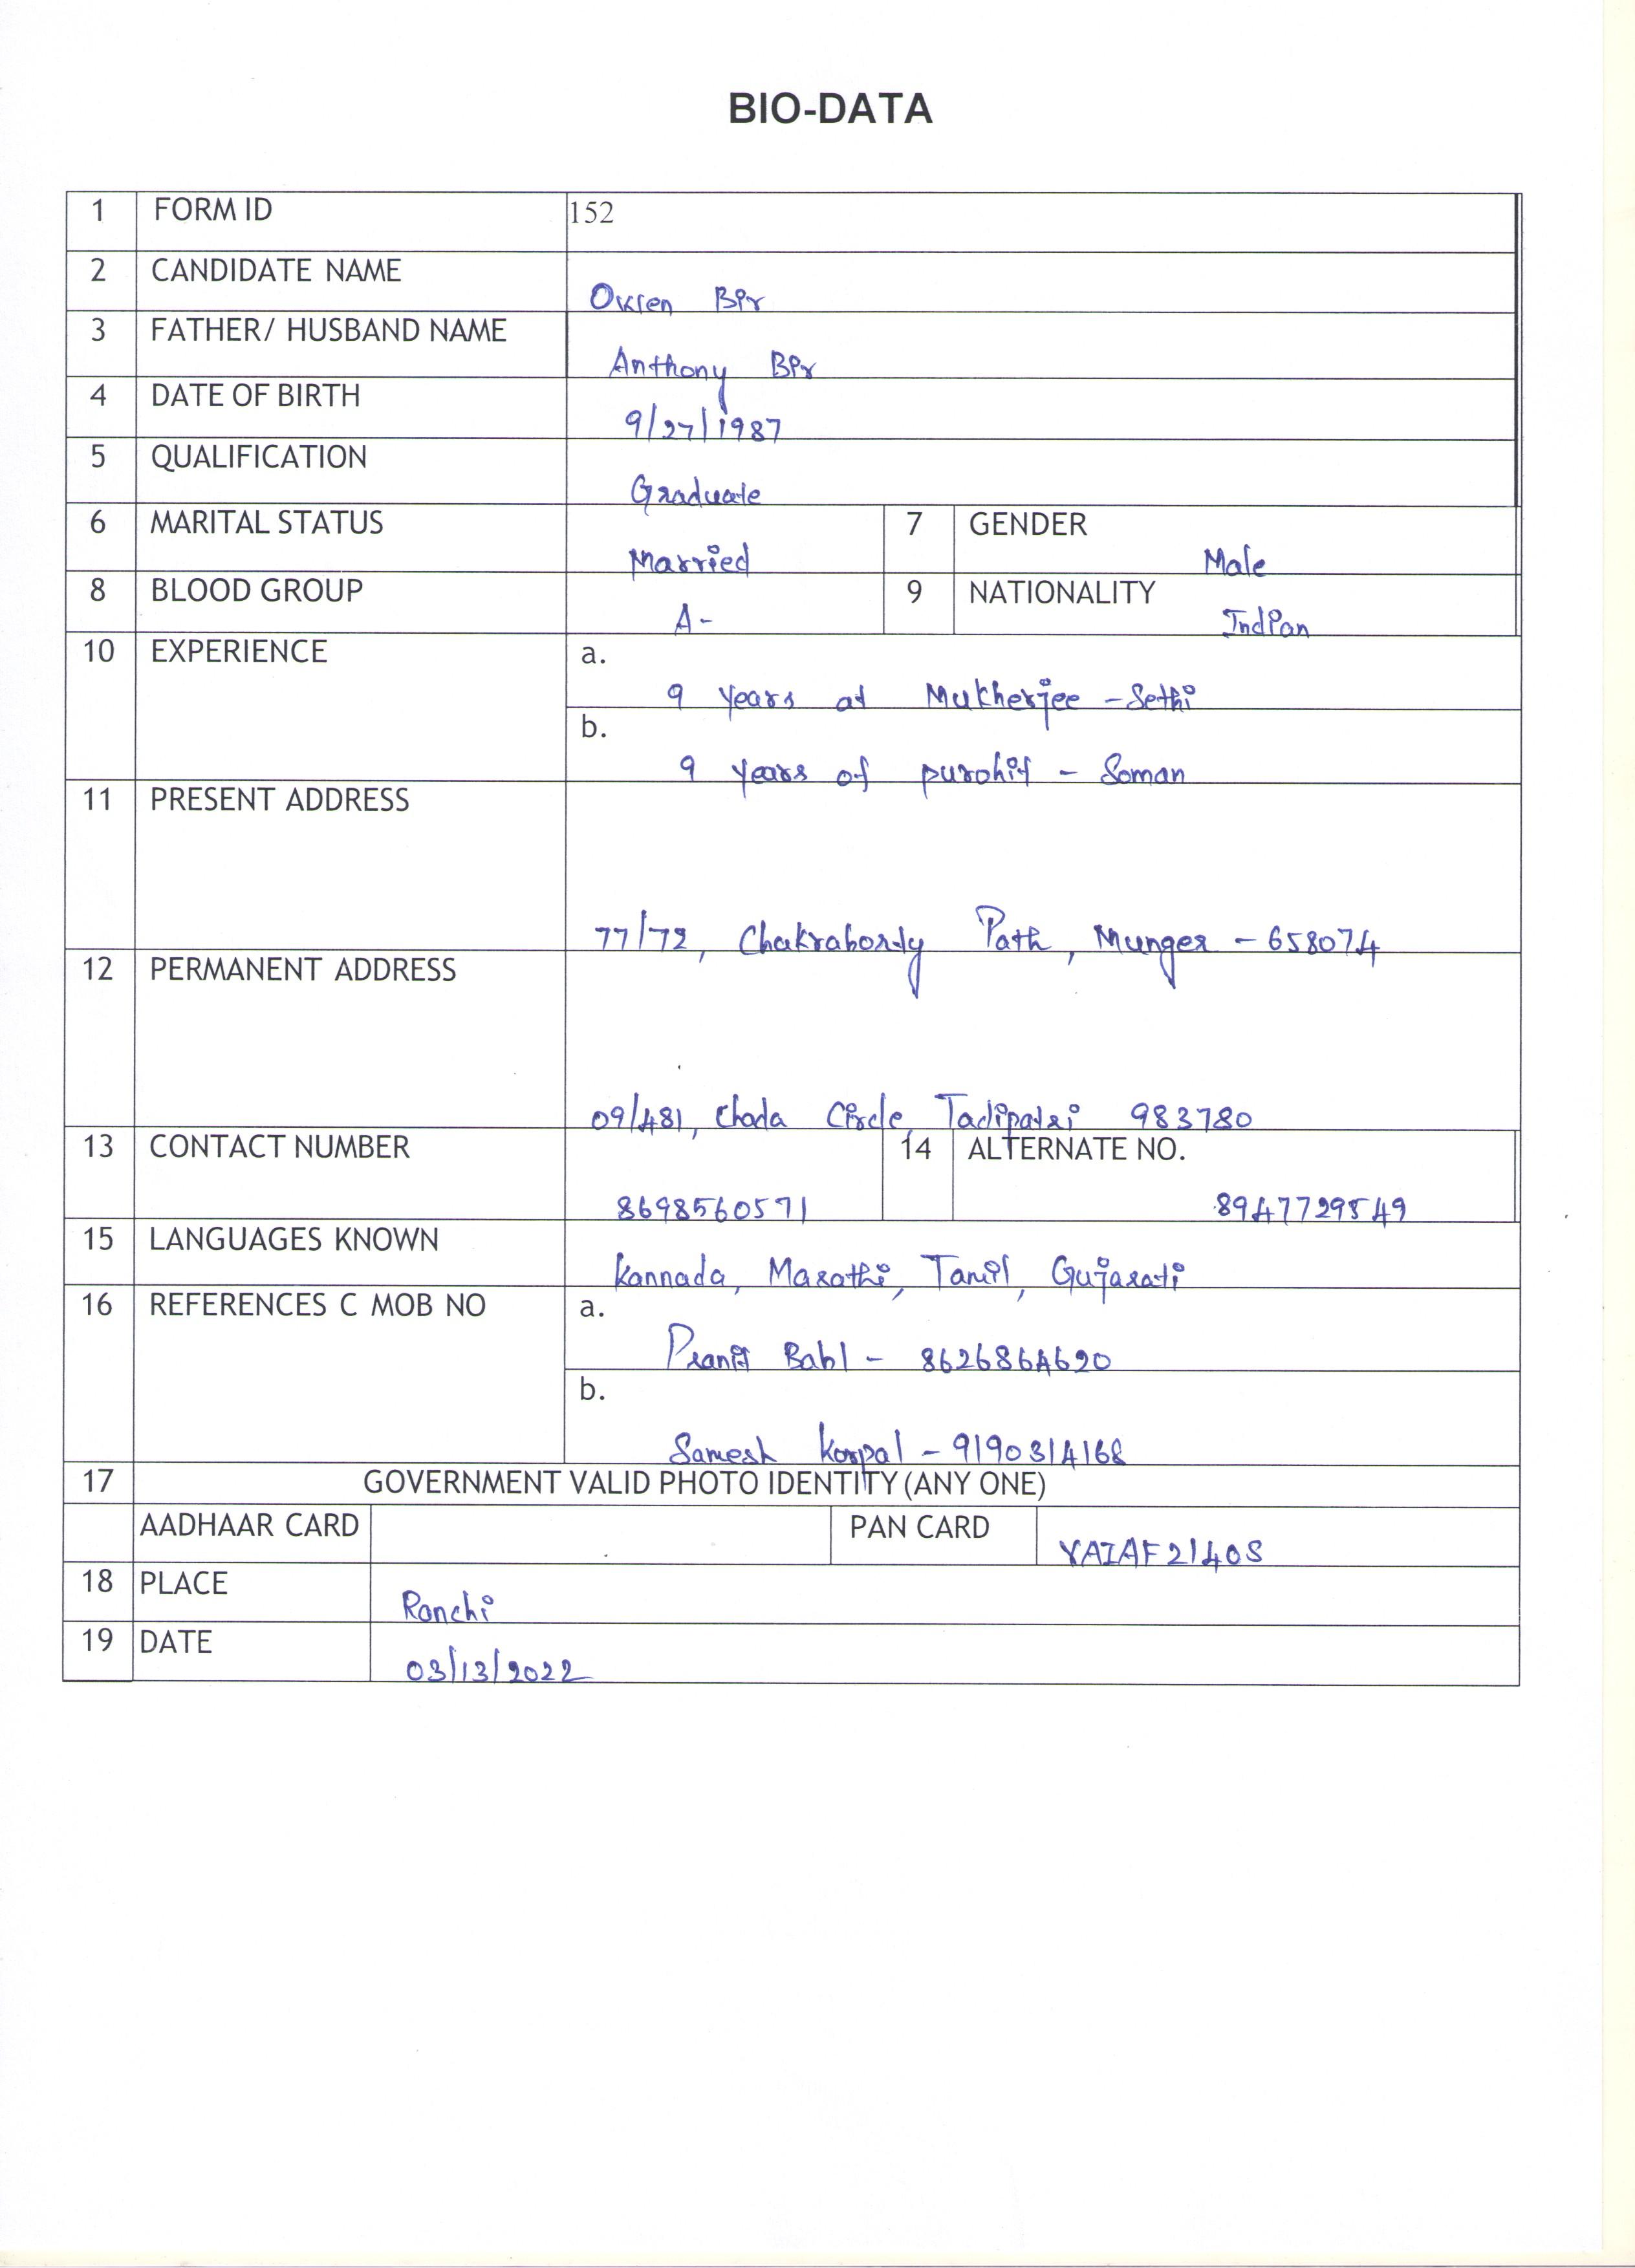 BIO-DATA
1 FORM ID 152
2 CANDIDATE NAME Bir
3 FATHER/ HUSBAND NAME Anthony Bir
4 DATE OF BIRTH 9/27/1987
5 QUALIFICATION Graduate
6 MARITAL STATUS Married 7 GENDER Male
8 BLOOD GROUP A- 9 NATIONALITY Indian
10 EXPERIENCE a. 9 years at Mukherjee - Sethi
b. 9 years of purohit - Soman
11 PRESENT ADDRESS
77/72, Chakraborty Path, Munger - 658074
12 PERMANENT ADDRESS
09/481, Chada Circle, Tadipatri 983780
13 CONTACT NUMBER 8698560571 14 ALTERNATE NO. 8947729549
15 LANGUAGES KNOWN Kannada, Marathi, Tamil, Gujarati
16 REFERENCES C MOB NO a. Babl - 8626864620
b. Samesh Korpal - 9190314168
17 GOVERNMENT VALID PHOTO IDENTITY (ANY ONE)
AADHAAR CARD PAN CARD YAIAF2140S
18 PLACE Ranchi
19 DATE 03/13/2022